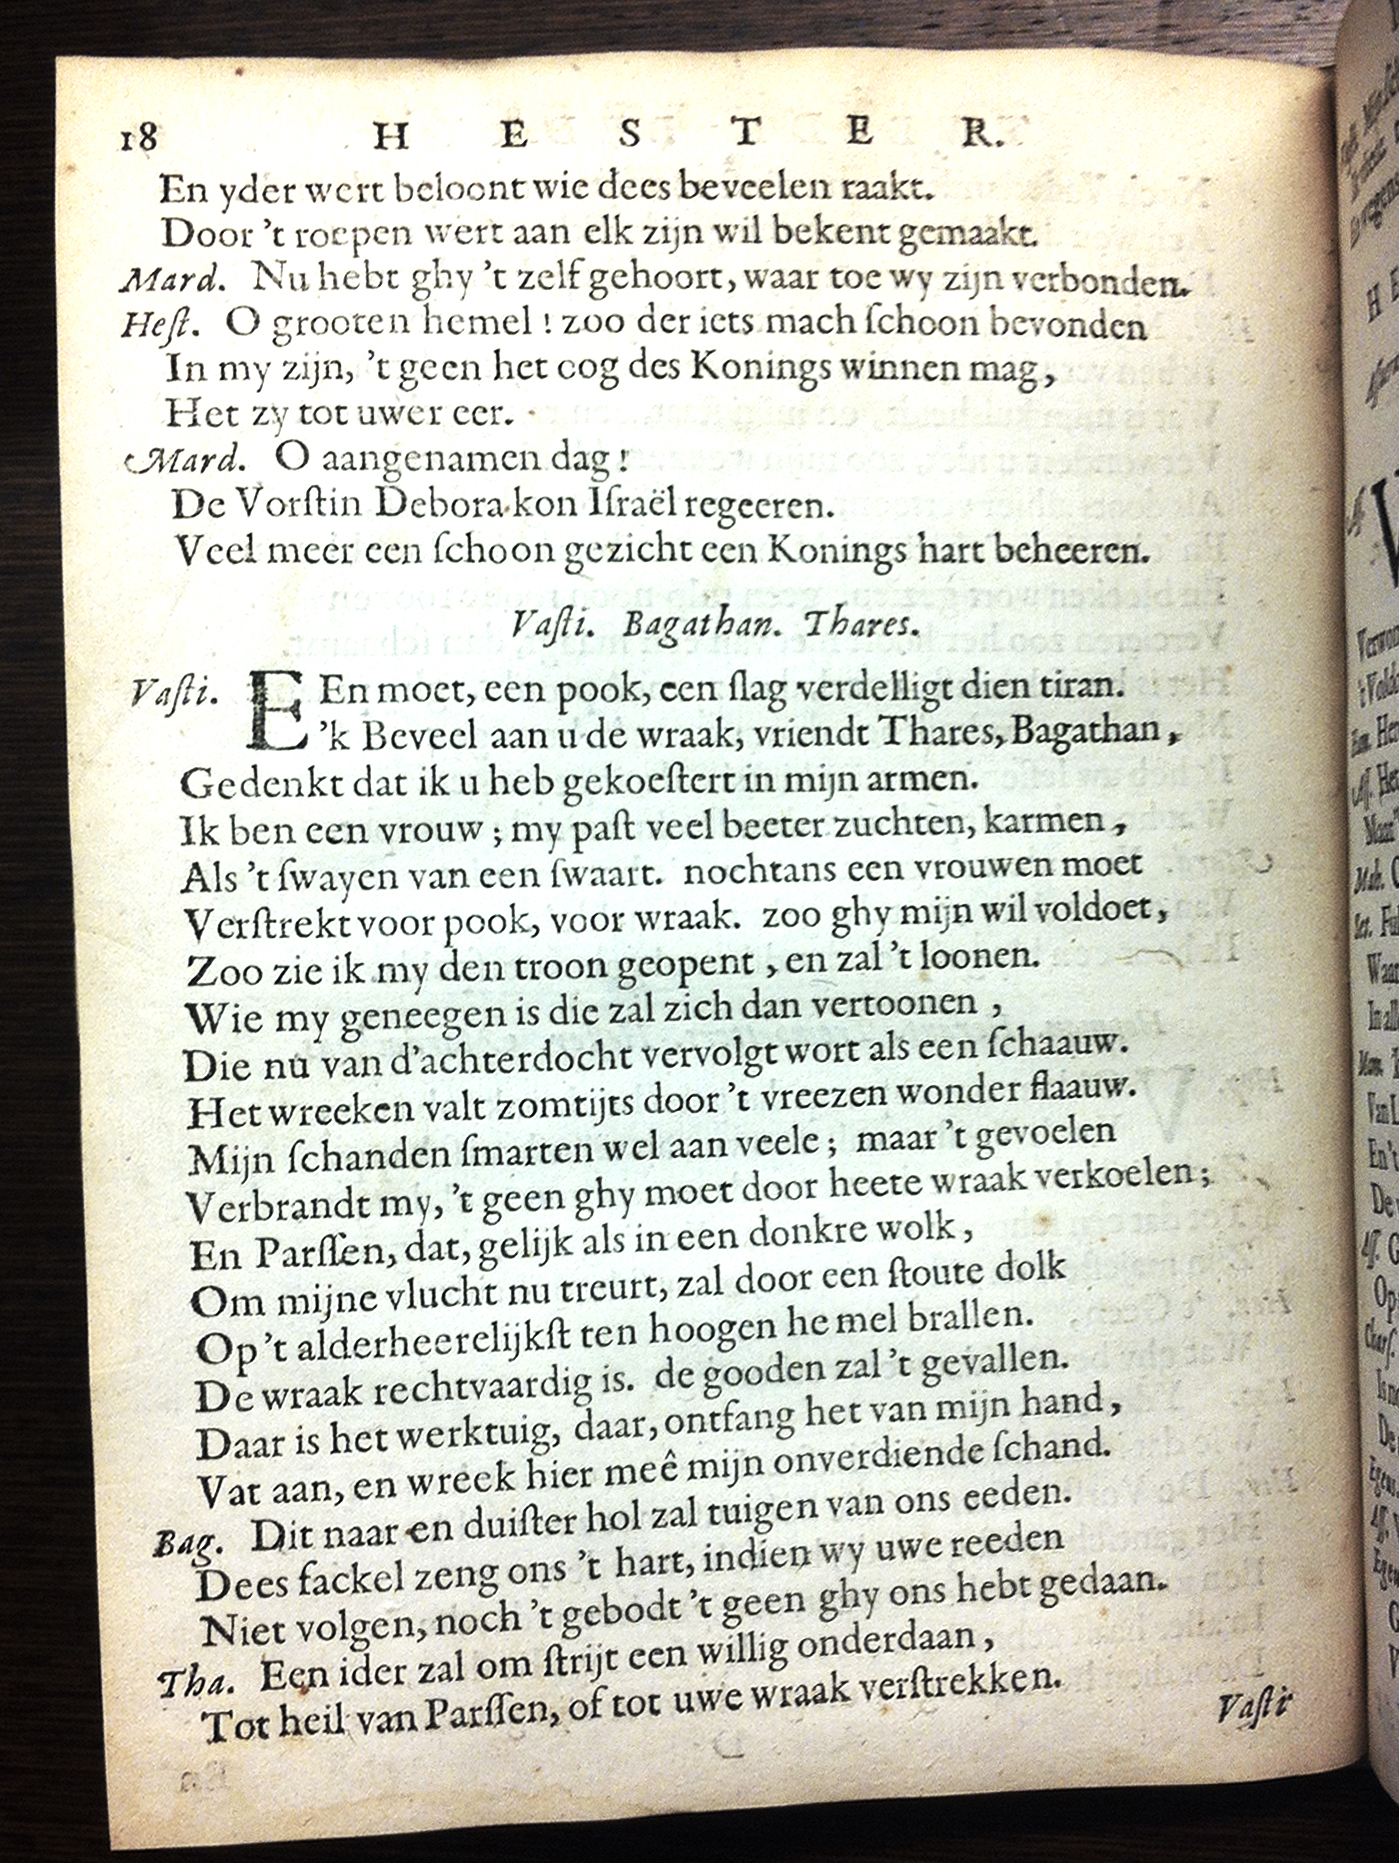 18 HESTER.
En yder wert beloont wie dees beveelen raakt.
Door 't roepen wert aan elk zijn wil bekent gemaakt.
Mard. Nu hebt ghy 't zelf gehoort, waar toe wy zijn verbonden.
Heſt. O grooten hemel! zoo der iets mach ſchoon bevonden
In my zijn, 't geen het oog des Konings winnen mag,
Het zy tot uwer eer.
Mard. O aangenamen dag!
De Vorſtin Debora kon Iſraël regeeren.
Veel meer een ſchoon gezicht een Konings hart beheeren.
Vaſti. Bagathan. Thares.
Vaſti. EEn moet, een pook, een ſlag verdelligt dien tiran.
'k Beveel aan u de wraak, vriendt Thares, Bagathan,
Gedenkt dat ik u heb gekoeſtert in mijn armen.
Ik ben een vrouw; my paſt veel beeter zuchten, karmen,
Als 't ſwayen van een ſwaart. nochtans een vrouwen moet
Verſtrekt voor pook, voor wraak. zoo ghy mijn wil voldoet,
Zoo zie ik my den troon geopent, en zal 't loonen.
Wie my geneegen is die zal zich dan vertoonen,
Die nu van d'achterdocht vervolgt wort als een ſchaauw.
Het wreeken valt zomtijts door 't vreezen wonder flaauw.
Mijn ſchanden ſmarten wel aan veele; maar 't gevoelen
Verbrandt my, 't geen ghy moet door heete wraak verkoelen;
En Parſſen, dat, gelijk als in een donkre wolk,
Om mijne vlucht nu treurt, zal door een ſtoute dolk
Op 't alderheerelijkſt ten hoogen hemel brallen.
De wraak rechtvaardig is. de gooden zal 't gevallen.
Daar is het werktuig, daar, ontfang het van mijn hand,
Vat aan, en wreek hier meê mijn onverdiende ſchand.
Bag. Dit naar en duiſter hol zal tuigen van ons eeden.
Dees fackel zeng ons 't hart, indien wy uwe reeden
Niet volgen, noch 't gebodt 't geen ghy ons hebt gedaan.
Tha. Een ider zal om ſtrijt een willig onderdaan,
Tot heil van Parſſen, of tot uwe wraak verſtrekken.
Vaſti